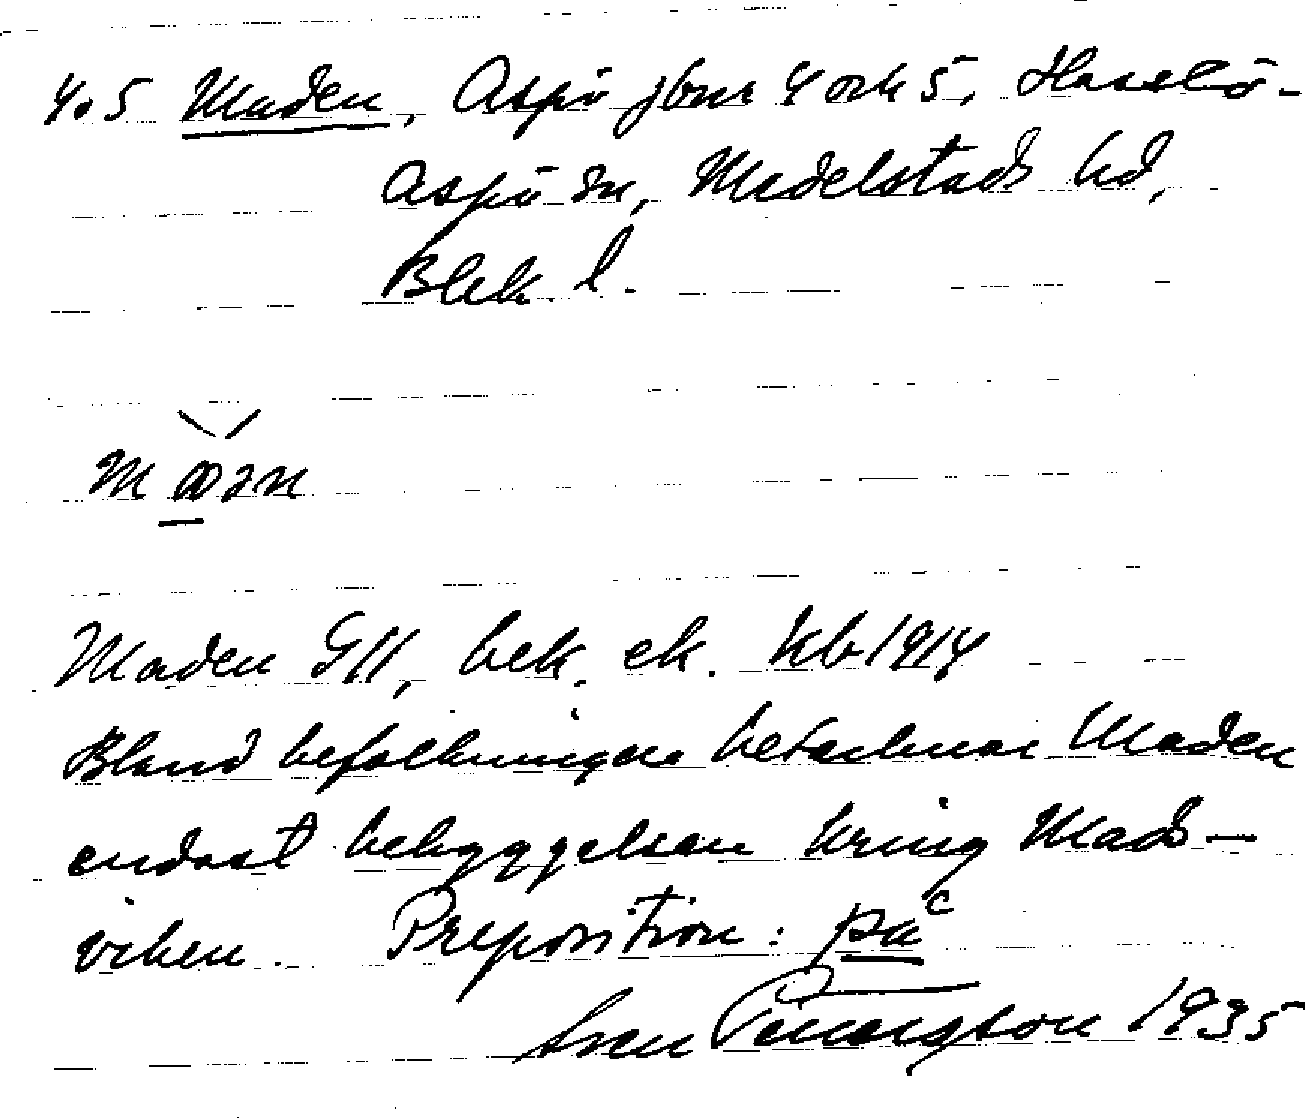 4o5 Maden, Aspö jbnr 4 och 5, Hasslö-
Aspö sn, Medelstads hd,
Blek. l.
Maden Gll, bek. ek. kb 1914
Bland befolkningen betecknar Maden
endast bebyggelsen kring Mads-
viken. Preposition: på
Sven Benson 1935